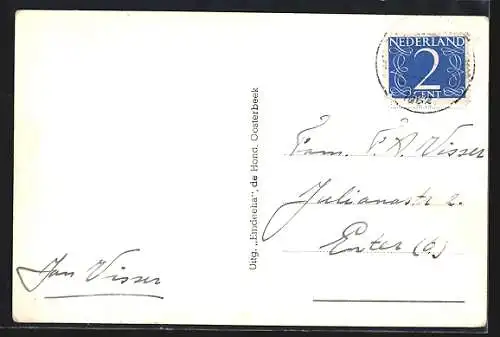 NEDERLAND
2
CENT
Fam. F. A. Visser
Julianastr 2.
Enter (O.)
Jan Visser
Uitg. „Eindeeha", de Hond, Oosterbeek